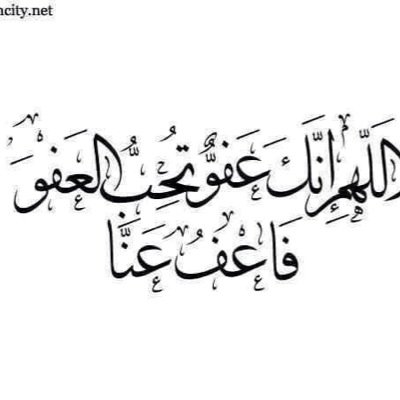 ncity.net
اللَّهُمَّ إِنَّكَ عَفُوٌّ تُحِبُّ الْعَفْوَ
فَاعْفُ عَنَّا